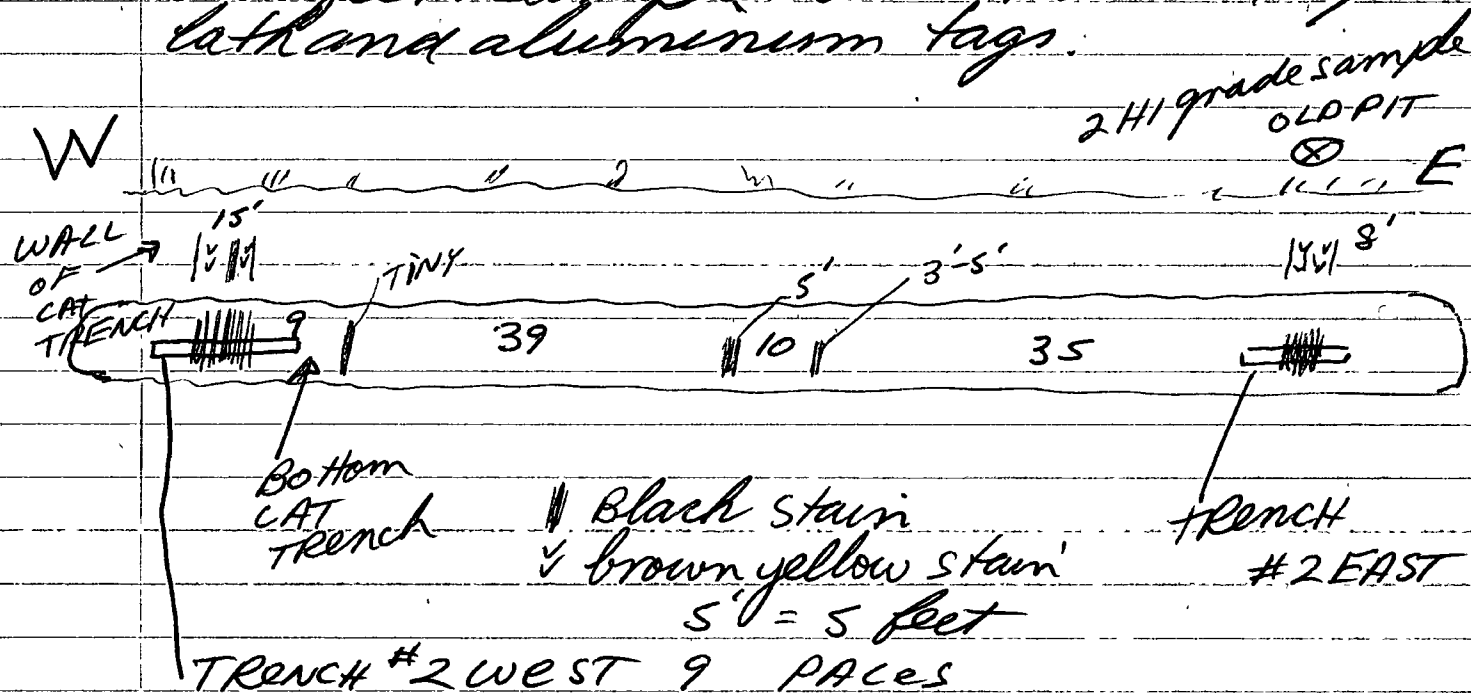 lath and aluminum tags.
2 HI grade sample
OLD PIT
W
E
15'
8'
WALL
OF
CAT
TRENCH
TINY
5'
3'-5'
9
39
10
35
Bottom
CAT
TRench
Black stain
brown yellow stain
5' = 5 feet
TRENCH
#2 EAST
TRENCH #2 WEST 9 PACES